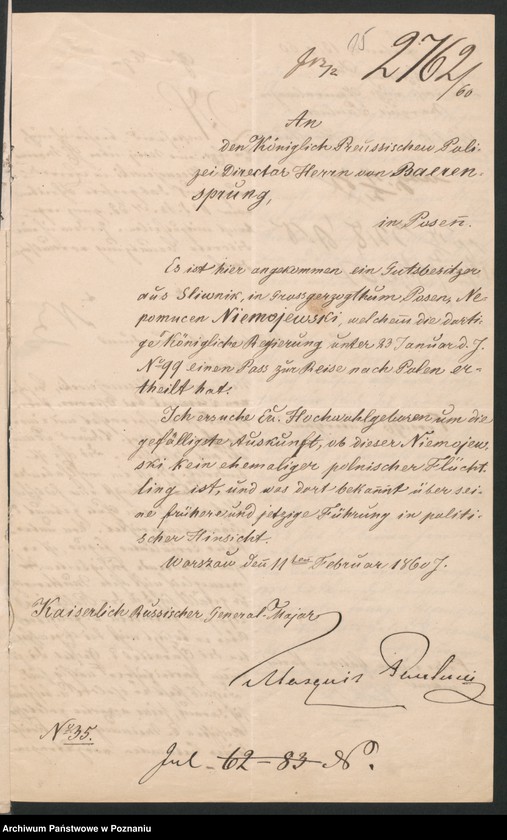 15
2762/60
An
den Königlich Preussischen Poli-
zei Director Herrn von Baeren-
sprung,
in Posen̄.
Es ist hier angekommen ein Gutsbesitzer
aus Sliwnik, in Grossgerzogthum Posen, Ne-
pomucen Niemojewski, welchem die dorti-
ge Königliche Regierung unter 23 Januar d. J.
No 99 einen Pass zur Reise nach Polen er-
theilt hat.
Ich ersuche Eu. Hochwohlgeboren um die
gefälligste Auskunft, ob dieser Niemojew-
ski kein ehemaliger polnischer Flücht-
ling ist, und was dort bekan̄t über sei-
ne frühere und jetzige Führung in politi-
scher Hinsicht.
Warszau den̄ 11ten Februar 1860 J.
Kaiserlich Russischer General-Major
Marquis Paulucci
No 35.
62-83
Archiwum Państwowe w Poznaniu